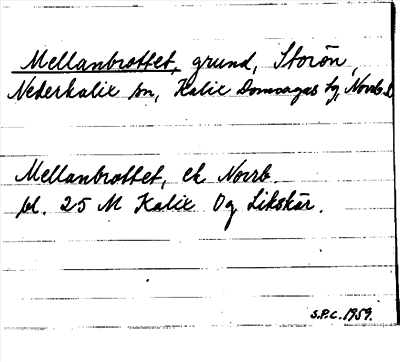 Mellanbrottet, grund, Storön,
Nederkalix sn, Kalix Domsagas tg, Norrb. l.
Mellanbrottet, ek Norrb.
bl. 25 M Kalix Og Likskär.
S.P.C. 1959.